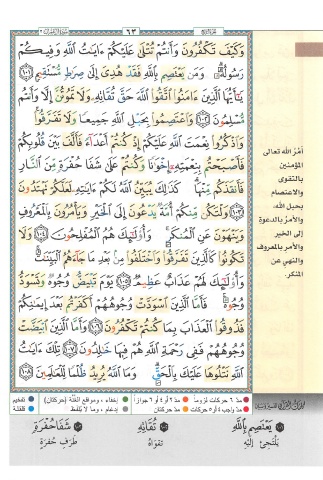 سُورَةُ آلِ عِمْرَان ٣
٦٣
الجزء الرابع
وَكَيْفَ تَكْفُرُونَ وَأَنتُمْ تُتْلَىٰ عَلَيْكُمْ ءَايَٰتُ ٱللَّهِ وَفِيكُمْ
رَسُولُهُۥ ۗ وَمَن يَعْتَصِم بِٱللَّهِ فَقَدْ هُدِىَ إِلَىٰ صِرَٰطٍ مُّسْتَقِيمٍ ١٠١
يَٰٓأَيُّهَا ٱلَّذِينَ ءَامَنُوا۟ ٱتَّقُوا۟ ٱللَّهَ حَقَّ تُقَاتِهِۦ وَلَا تَمُوتُنَّ إِلَّا وَأَنتُم
مُّسْلِمُونَ ١٠٢ وَٱعْتَصِمُوا۟ بِحَبْلِ ٱللَّهِ جَمِيعًا وَلَا تَفَرَّقُوا۟ ۚ
وَٱذْكُرُوا۟ نِعْمَتَ ٱللَّهِ عَلَيْكُمْ إِذْ كُنتُمْ أَعْدَآءً فَأَلَّفَ بَيْنَ قُلُوبِكُمْ
فَأَصْبَحْتُم بِنِعْمَتِهِۦٓ إِخْوَٰنًا وَكُنتُمْ عَلَىٰ شَفَا حُفْرَةٍ مِّنَ ٱلنَّارِ
فَأَنقَذَكُم مِّنْهَا ۗ كَذَٰلِكَ يُبَيِّنُ ٱللَّهُ لَكُمْ ءَايَٰتِهِۦ لَعَلَّكُمْ تَهْتَدُونَ
١٠٣ وَلْتَكُن مِّنكُمْ أُمَّةٌ يَدْعُونَ إِلَى ٱلْخَيْرِ وَيَأْمُرُونَ بِٱلْمَعْرُوفِ
وَيَنْهَوْنَ عَنِ ٱلْمُنكَرِ ۚ وَأُو۟لَٰٓئِكَ هُمُ ٱلْمُفْلِحُونَ ١٠٤ وَلَا
تَكُونُوا۟ كَٱلَّذِينَ تَفَرَّقُوا۟ وَٱخْتَلَفُوا۟ مِنۢ بَعْدِ مَا جَآءَهُمُ ٱلْبَيِّنَٰتُ ۚ
وَأُو۟لَٰٓئِكَ لَهُمْ عَذَابٌ عَظِيمٌ ١٠٥ يَوْمَ تَبْيَضُّ وُجُوهٌ وَتَسْوَدُّ
وُجُوهٌ ۚ فَأَمَّا ٱلَّذِينَ ٱسْوَدَّتْ وُجُوهُهُمْ أَكَفَرْتُم بَعْدَ إِيمَٰنِكُمْ
فَذُوقُوا۟ ٱلْعَذَابَ بِمَا كُنتُمْ تَكْفُرُونَ ١٠٦ وَأَمَّا ٱلَّذِينَ ٱبْيَضَّتْ
وُجُوهُهُمْ فَفِى رَحْمَةِ ٱللَّهِ هُمْ فِيهَا خَٰلِدُونَ ١٠٧ تِلْكَ ءَايَٰتُ
ٱللَّهِ نَتْلُوهَا عَلَيْكَ بِٱلْحَقِّ ۗ وَمَا ٱللَّهُ يُرِيدُ ظُلْمًا لِّلْعَٰلَمِينَ ١٠٨
أمْرُ الله تعالى
المؤمنين
بالتقوى
والاعتصام
بحبل الله،
والأمرُ بالدعوة
إلى الخير
والأمر بالمعروف
والنهي عن
المنكر.
مدّ ٦ حركات لزوماً
مدّ ٢ أو ٤ أو ٦ جوازاً
إخفاء، ومواقع الغُنَّة (حركتان)
تفخيم
مدّ واجب ٤ أو ٥ حركات
مدّ حركتان
إدغام، وما لا يُلفَظ
قلقلة
يَعْتَصِم بِاللَّهِ
يَلْتَجِئْ إِلَيْهِ
تُقَاتِهِ
تَقْوَاهُ
شَفَا حُفْرَةٍ
طَرَفِ حُفْرَةٍ